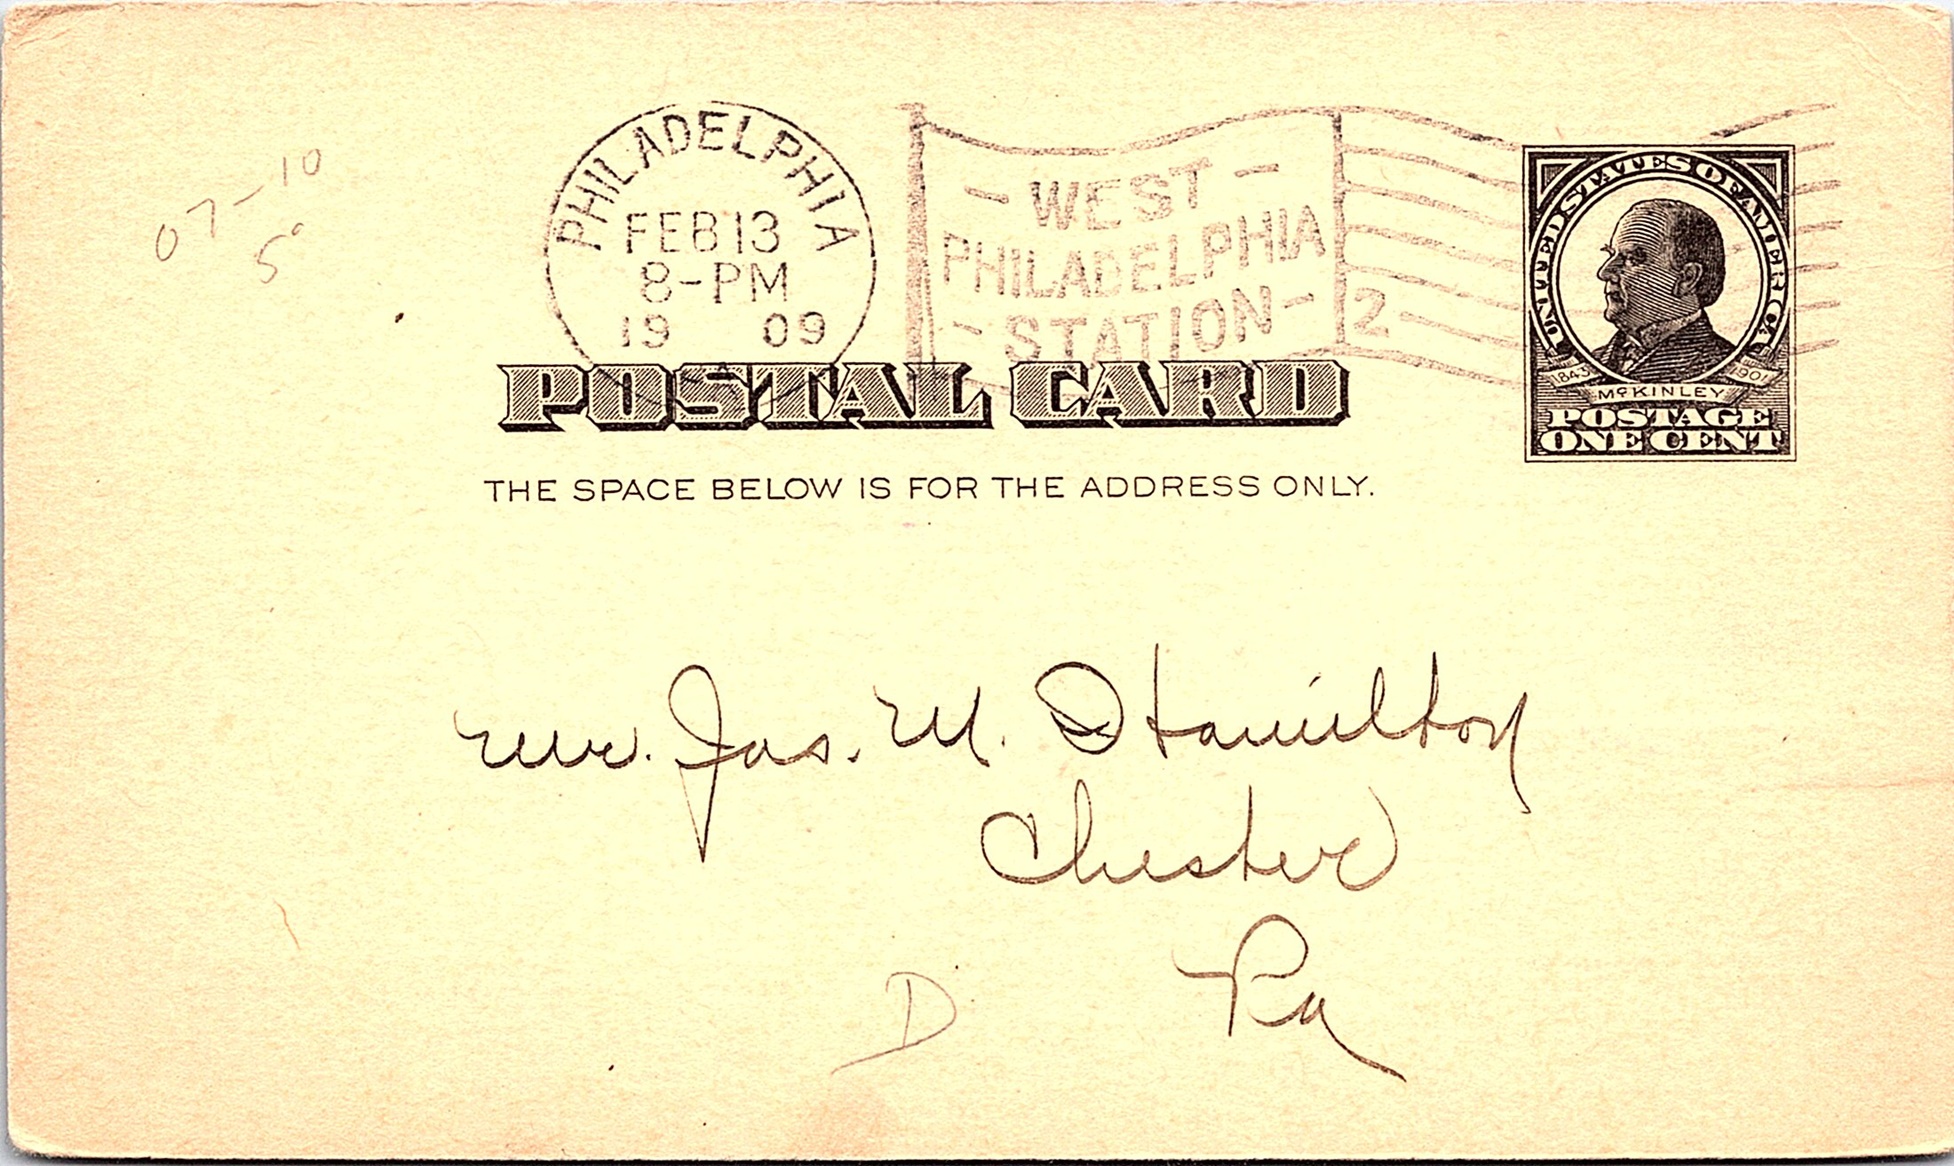 07-10
5°
PHILADELPHIA
FEB 13
8-PM
19 09
- WEST -
PHILADELPHIA
- STATION -
2
UNITED STATES OF AMERICA
1843 1901
McKINLEY
POSTAGE
ONE CENT
POSTAL CARD
THE SPACE BELOW IS FOR THE ADDRESS ONLY.
Mr. Jas. M. Hamilton
Chester
Pa
D